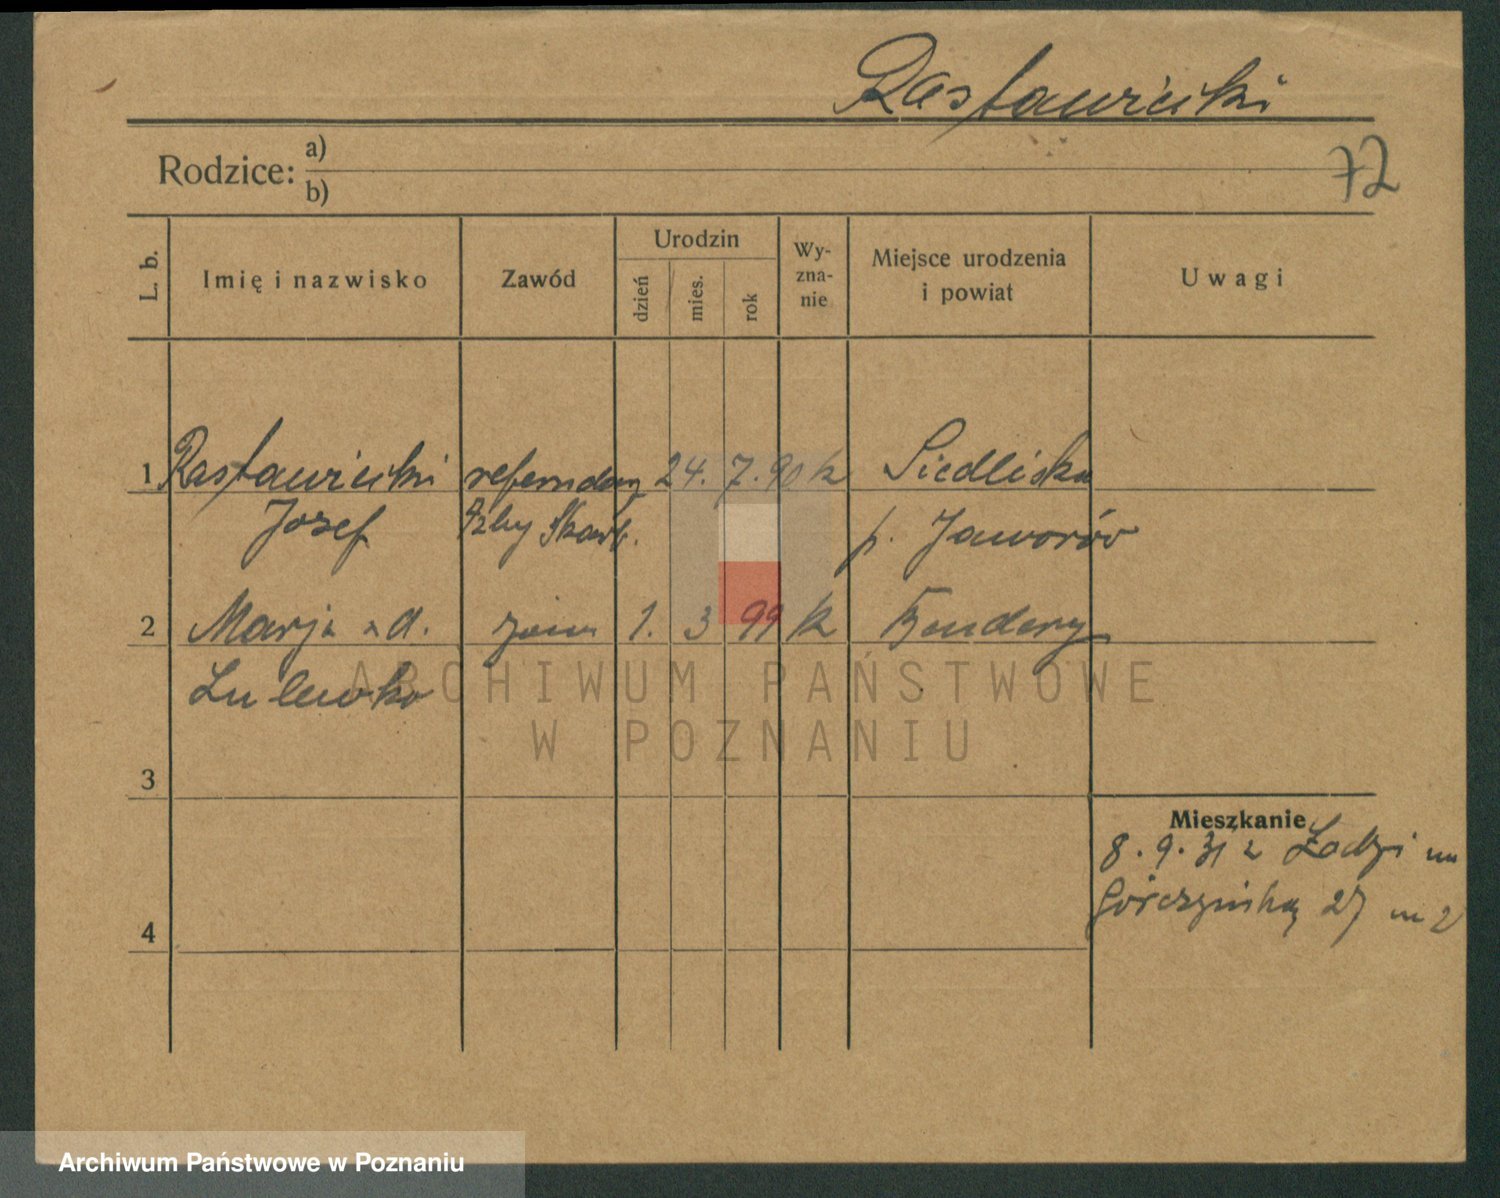 Rastawiecki
72
Rodzice: a)
b)
L. b.
Imię i nazwisko
Zawód
Urodzin
dzień
mies.
rok
Wy-
zna-
nie
Miejsce urodzenia
i powiat
Uwagi
1 Rastawiecki referendarz 24. 7. 90 k Siedliska
Józef Izby Skarb. p. Jaworów
2 Marja z d. żona 1. 3 99 k Bendery
ARCHIWUM PAŃSTWOWE
W POZNANIU
3
Mieszkanie
8. 9. 31 z Łodzi na
Górczyńską 27 m 2
4
Archiwum Państwowe w Poznaniu